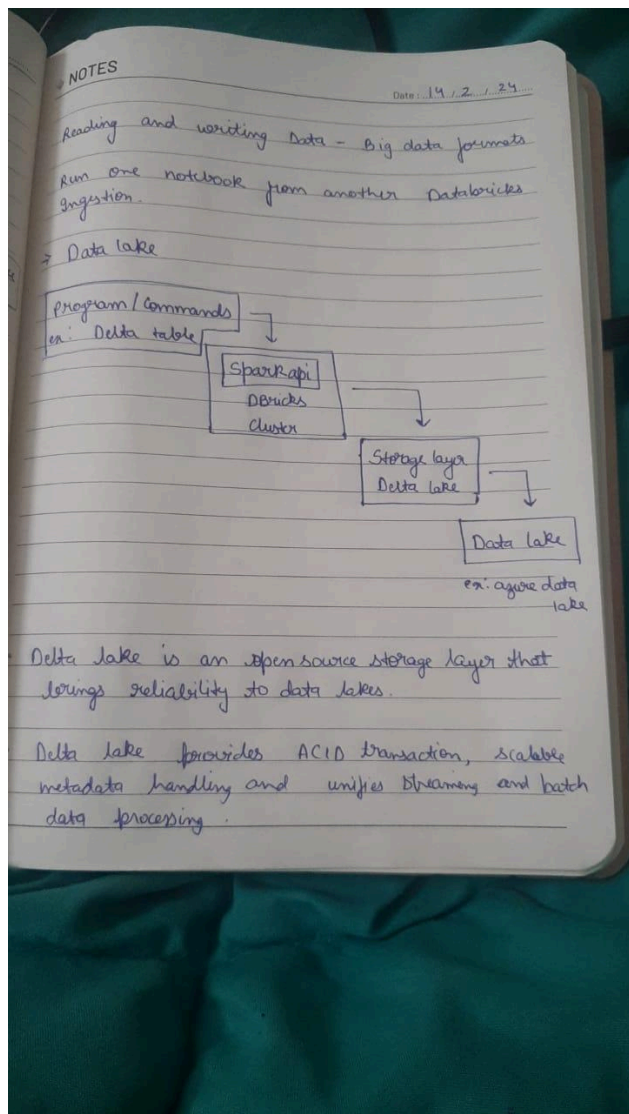 NOTES
Date: 14 / 2 / 24
Reading and writing Data - Big data formats
Run one notebook from another Databricks
Ingestion.
→ Data lake
Program / Commands
ex: Delta table
Spark api
DBricks
Cluster
Storage layer
Delta lake
Data lake
ex: azure data
lake
Delta lake is an open source storage layer that
brings reliability to data lakes.
Delta lake provides ACID transaction, scalable
metadata handling and unifies streaming and batch
data processing.